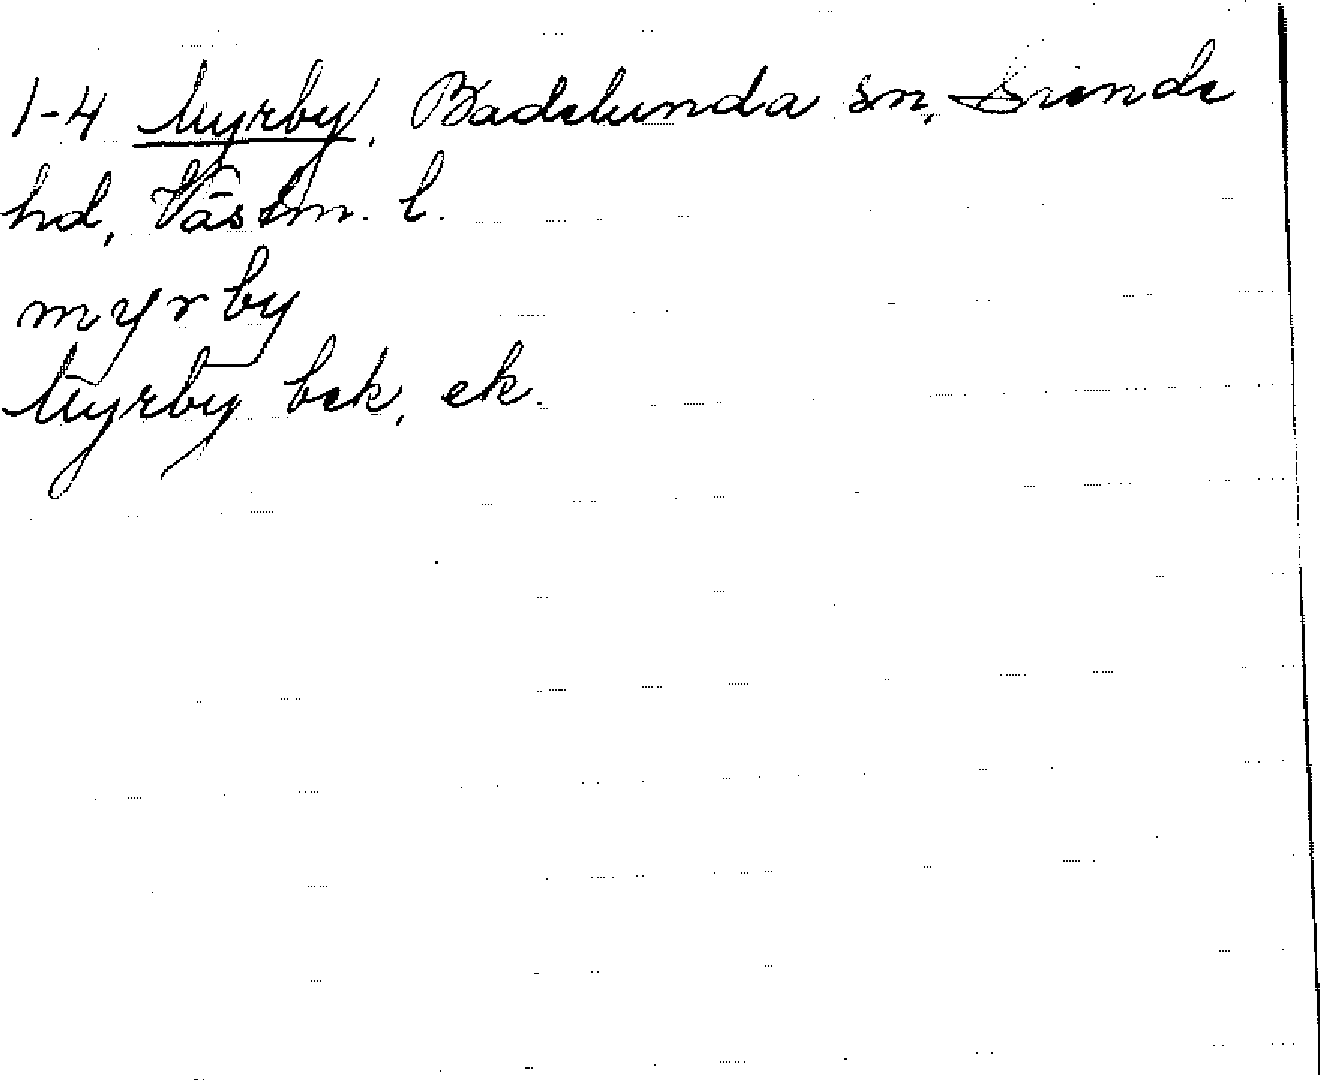 1-4 Myrby, Badelunda sn, Siende
hd, Västm. l.
myrby
Myrby bek, ek.